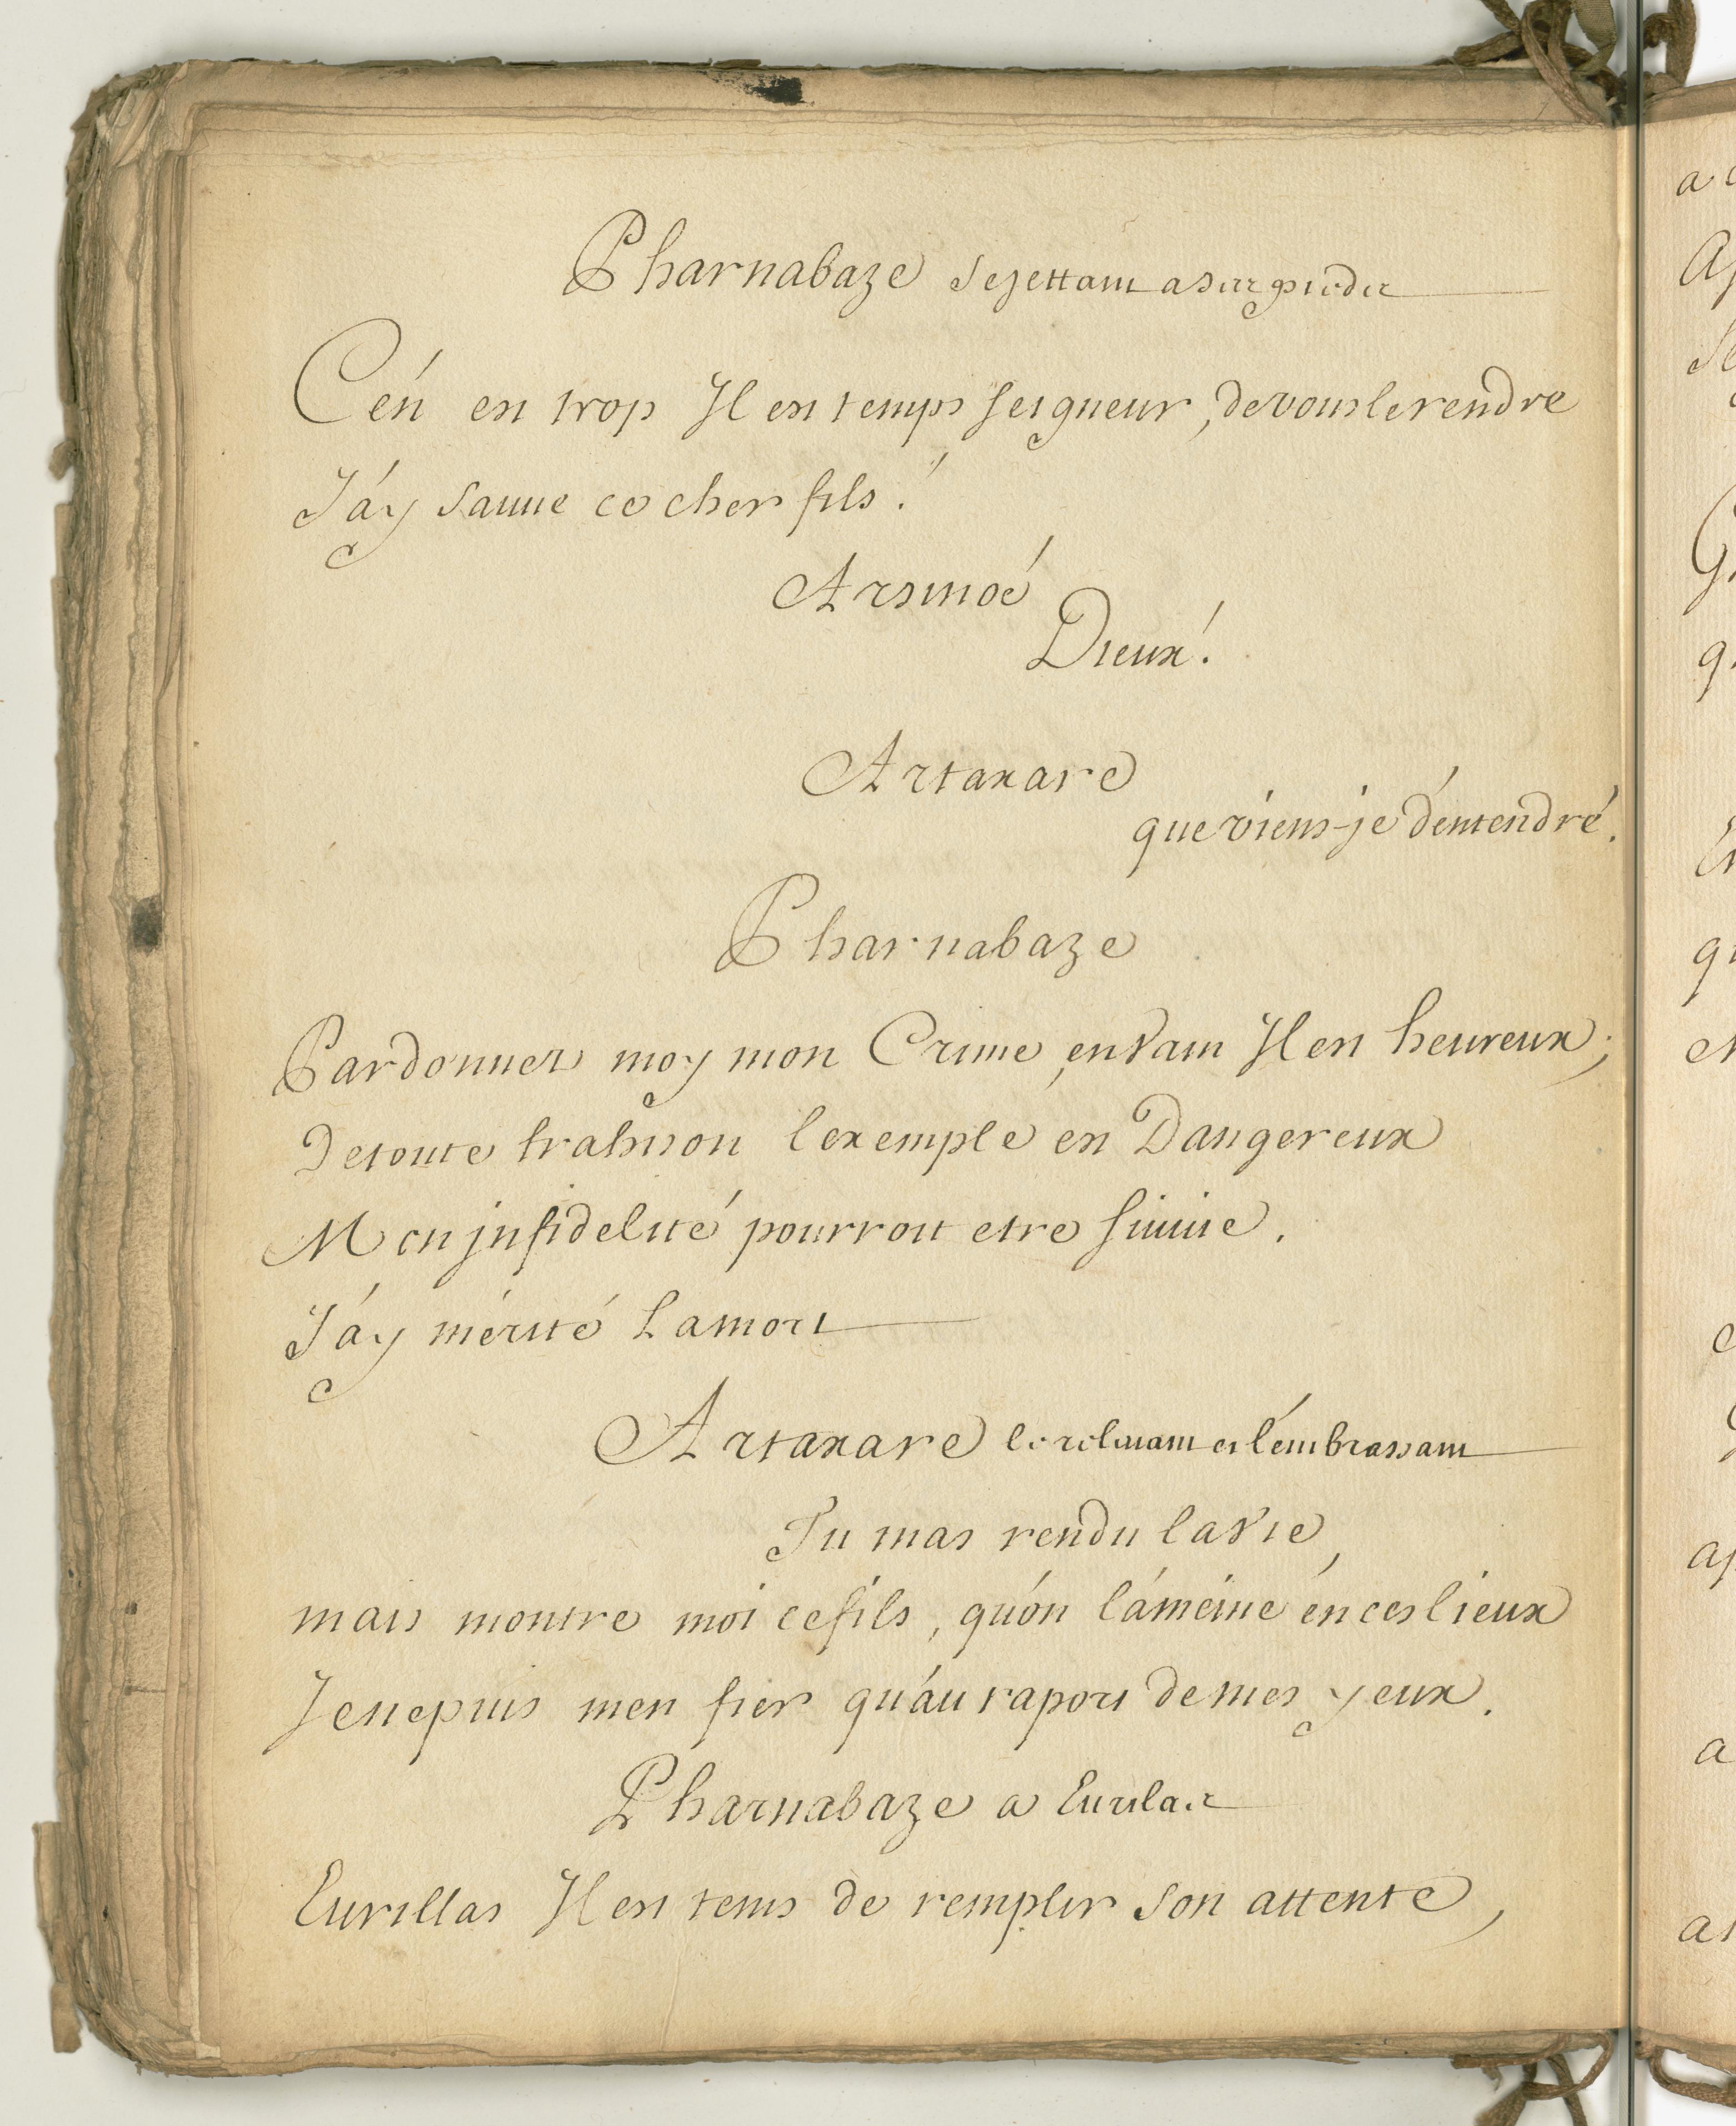 Pharnabaze se jettant a ses pieds
C'en est trop Il est temps seigneur, de vous le rendre
J'ay sauué ce cher fils!
Arsinoé
Dieux!
Artaxare
que viens-je d'entendre.
Pharnabaze
Pardonnez moy mon Crime, en vain Il est heureux;
De toute trahison l'exemple est Dangereux
Mon jnfidelité pourroit etre suiuie.
J'ay mérité La mort
Artaxare le releuant et l'embrassant
Tu mas rendu la vie,
mais montre moi ce fils, qu'on l'améine en ces lieux
Je ne puis men fier qu'au raport de mes yeux.
Pharnabaze a Eurilas
Eurillas Il est tems de remplir son attente,